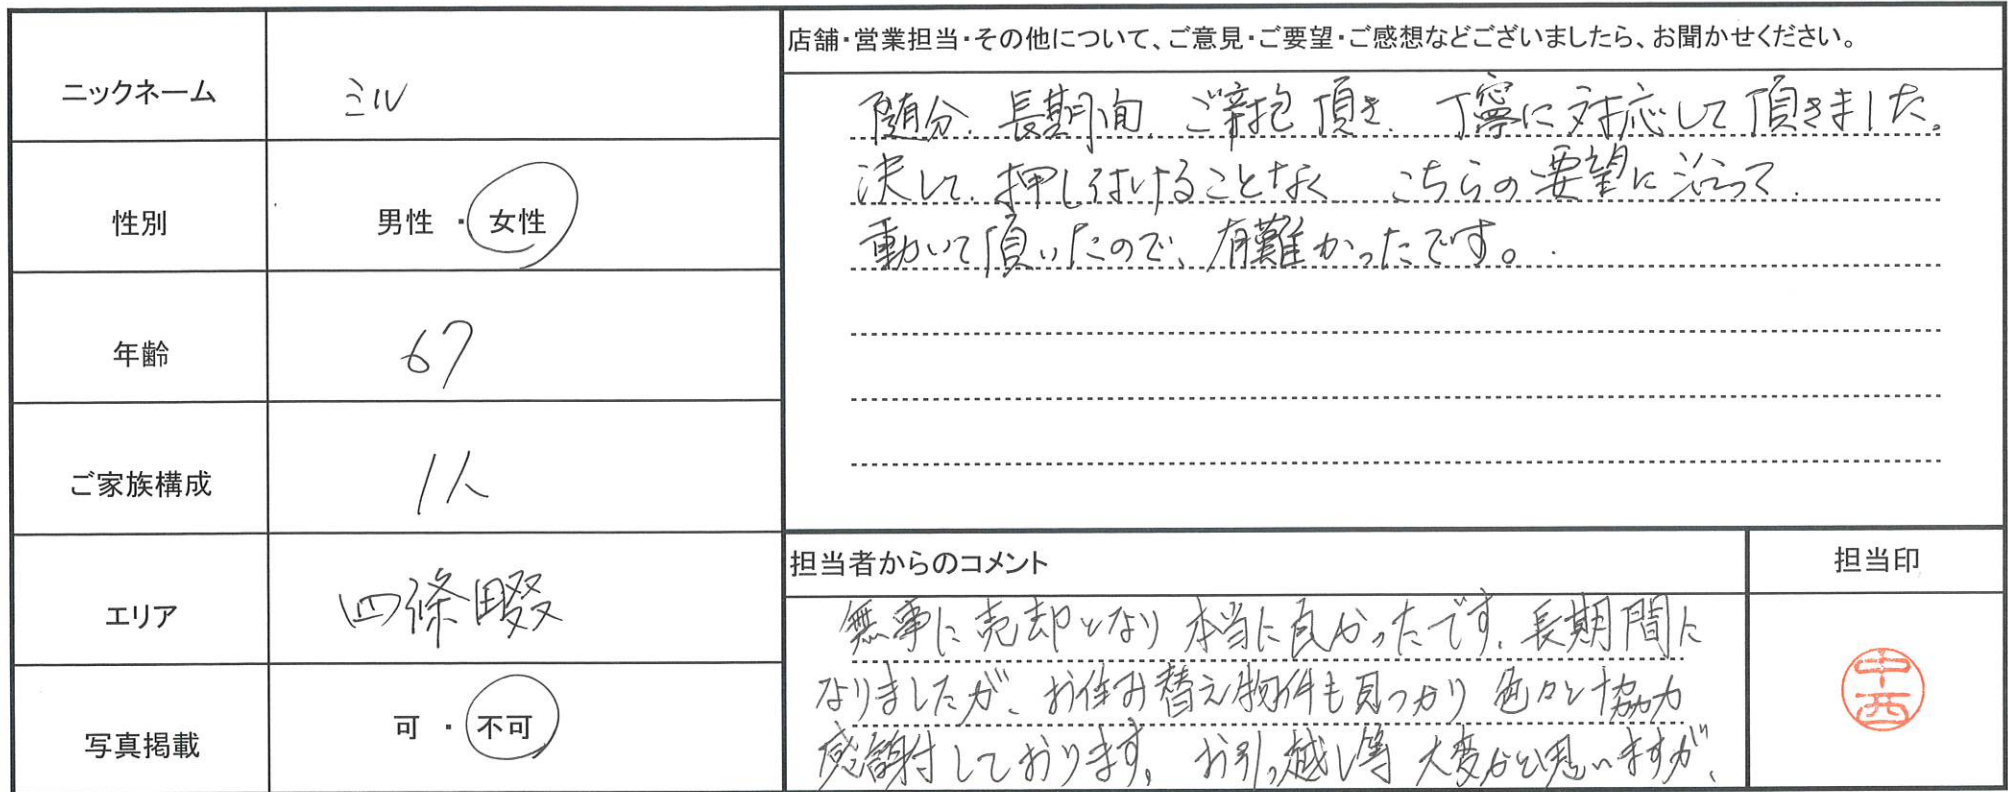 ニックネーム
ミル
性別
男性 ・ 女性
年齢
67
ご家族構成
1人
エリア
四條畷
写真掲載
可 ・ 不可
店舗・営業担当・その他について、ご意見・ご要望・ご感想などございましたら、お聞かせください。
随分、長期間、ご辛抱頂き、丁寧に対応して頂きました。
決して、押し付けることなく、こちらの要望に沿って、
動いて頂いたので、有難かったです。
担当者からのコメント
無事に売却となり本当に良かったです。長期間に
なりましたが、お住み替え物件も見つかり色々と協力
感謝しております。お引っ越し等大変かと思いますが、
担当印
中西